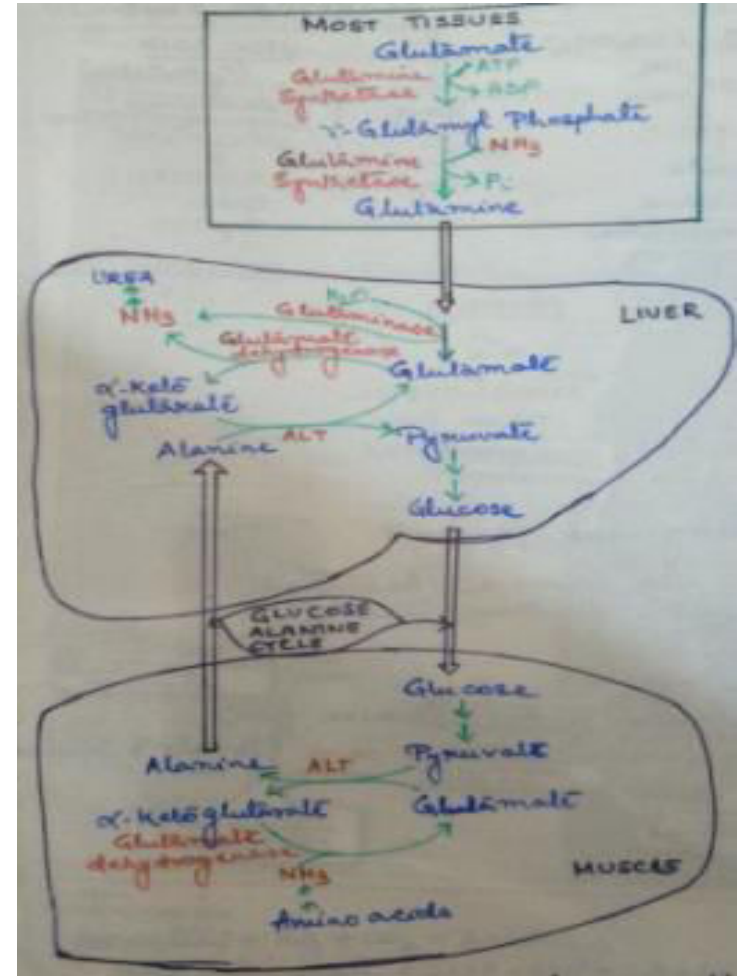 MOST TISSUES
Glutamate
Glutamine
Synthetase
ATP
ADP
γ-Glutamyl Phosphate
Glutamine
Synthetase
NH3
Pi
Glutamine
LIVER
UREA
NH3
H2O
Glutaminase
Glutamate
dehydrogenase
Glutamate
α-Keto
glutarate
Alanine
ALT
Pyruvate
Glucose
GLUCOSE
ALANINE
CYCLE
Glucose
Pyruvate
Alanine
ALT
α-Ketoglutarate
Glutamate
Glutamate
dehydrogenase
NH3
Amino acids
MUSCLE